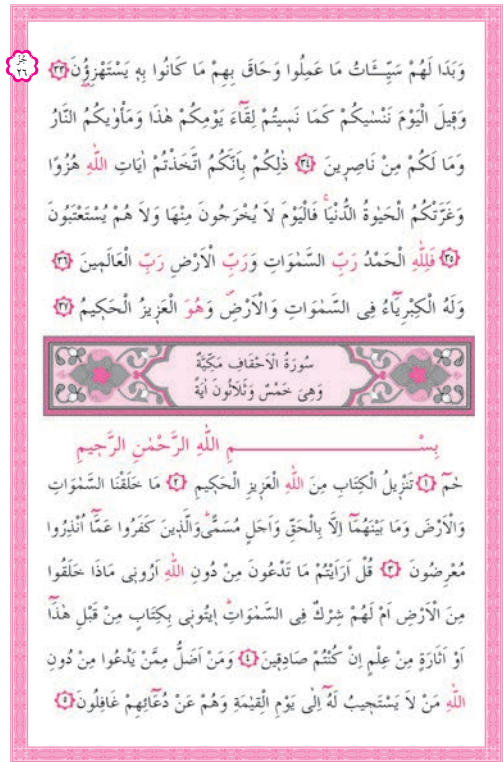 جُزْء
٢٦
وَبَدَا لَهُمْ سَيِّـَٔاتُ مَا عَمِلُوا وَحَاقَ بِهِمْ مَا كَانُوا بِهٖ يَسْتَهْزِؤُ۫نَ ﴿٣٣﴾
وَقٖيلَ الْيَوْمَ نَنْسٰيكُمْ كَمَا نَسٖيتُمْ لِقَٓاءَ يَوْمِكُمْ هٰذَا وَمَأْوٰيكُمُ النَّارُ
وَمَا لَكُمْ مِنْ نَاصِرٖينَ ﴿٣٤﴾ ذٰلِكُمْ بِاَنَّكُمُ اتَّخَذْتُمْ اٰيَاتِ اللّٰهِ هُزُوًا
وَغَرَّتْكُمُ الْحَيٰوةُ الدُّنْيَاۚ فَالْيَوْمَ لَا يُخْرَجُونَ مِنْهَا وَلَا هُمْ يُسْتَعْتَبُونَ
﴿٣٥﴾ فَلِلّٰهِ الْحَمْدُ رَبِّ السَّمٰوَاتِ وَرَبِّ الْاَرْضِ رَبِّ الْعَالَمٖينَ ﴿٣٦﴾
وَلَهُ الْكِبْرِيَٓاءُ فِى السَّمٰوَاتِ وَالْاَرْضِۖ وَهُوَ الْعَزٖيزُ الْحَكٖيمُ ﴿٣٧﴾
سُورَةُ الْاَحْقَافِ مَكِّيَّةٌ
وَهِىَ خَمْسٌ وَثَلَاثُونَ اٰيَةً
بِسْمِ اللّٰهِ الرَّحْمٰنِ الرَّحٖيمِ
حٰمٓ ﴿١﴾ تَنْزٖيلُ الْكِتَابِ مِنَ اللّٰهِ الْعَزٖيزِ الْحَكٖيمِ ﴿٢﴾ مَا خَلَقْنَا السَّمٰوَاتِ
وَالْاَرْضَ وَمَا بَيْنَهُمَٓا اِلَّا بِالْحَقِّ وَاَجَلٍ مُسَمًّىۜ وَالَّذٖينَ كَفَرُوا عَمَّٓا اُنْذِرُوا
مُعْرِضُونَ ﴿٣﴾ قُلْ اَرَاَيْتُمْ مَا تَدْعُونَ مِنْ دُونِ اللّٰهِ اَرُونٖى مَاذَا خَلَقُوا
مِنَ الْاَرْضِ اَمْ لَهُمْ شِرْكٌ فِى السَّمٰوَاتِۜ اٖيتُونٖى بِكِتَابٍ مِنْ قَبْلِ هٰذَٓا
اَوْ اَثَارَةٍ مِنْ عِلْمٍ اِنْ كُنْتُمْ صَادِقٖينَ ﴿٤﴾ وَمَنْ اَضَلُّ مِمَّنْ يَدْعُوا مِنْ دُونِ
اللّٰهِ مَنْ لَا يَسْتَجٖيبُ لَهُٓ اِلٰى يَوْمِ الْقِيٰمَةِ وَهُمْ عَنْ دُعَٓائِهِمْ غَافِلُونَ ﴿٥﴾